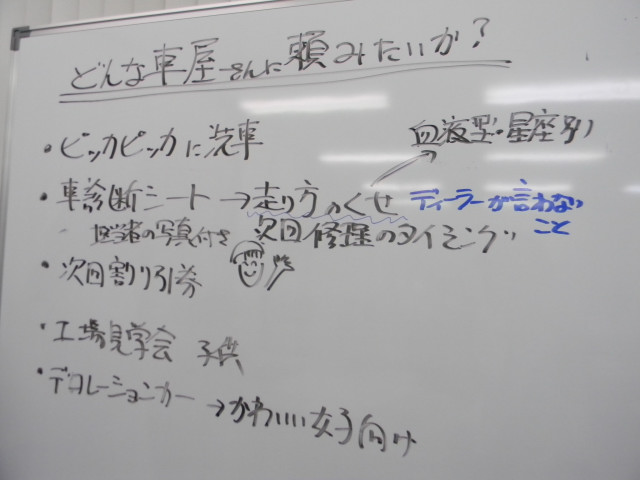 どんな車屋さんに頼みたいか?
・ピッカピッカに洗車
血液型・星座別
・車診断シート→走り方のくせ ディーラーが言わないこと
担当者の写真付き 次回修理のタイミング
・次回割り引券
・工場見学会 子供
・デコレーションカー→かわいい女子向け